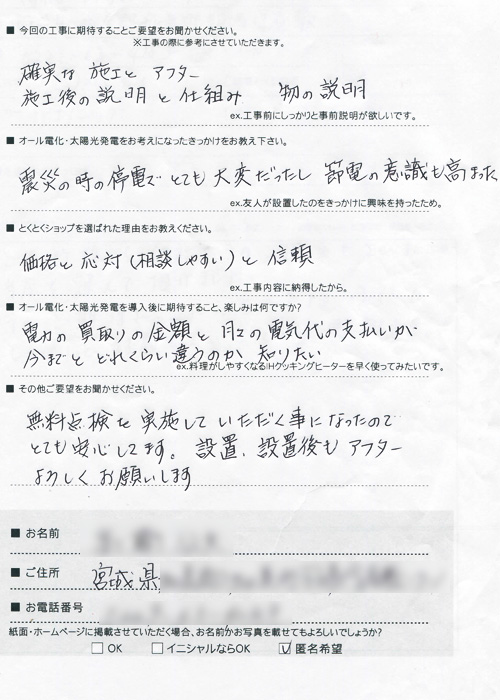 ■ 今回の工事に期待することご要望をお聞かせください。
※工事の際に参考にさせていただきます。
確実な 施工と アフター
施工後の説明と仕組み 物の説明
ex.工事前にしっかりと事前説明が欲しいです。
■ オール電化・太陽光発電をお考えになったきっかけをお教え下さい。
震災の時の停電で とても 大変だったし 節電の意識も高まった
ex.友人が設置したのをきっかけに興味を持ったため。
■ とくとくショップを選ばれた理由をお教えください。
価格と 応対(相談しやすい)と 信頼
ex.工事内容に納得したから。
■ オール電化・太陽光発電を導入後に期待すること、楽しみは何ですか?
電力の 買取りの 金額と 月々の 電気代の支払いが
今までと どれくらい違うのか 知りたい
ex.料理がしやすくなるIHクッキングヒーターを早く使ってみたいです。
■ その他ご要望をお聞かせください。
無料点検を 実施して いただく事になったので
とても安心してます。設置、設置後も アフター
よろしく お願いします
■ お名前
■ ご住所 宮城県
■ お電話番号
紙面・ホームページに掲載させていただく場合、お名前かお写真を載せてもよろしいでしょうか?
□ OK □ イニシャルならOK ☑ 匿名希望